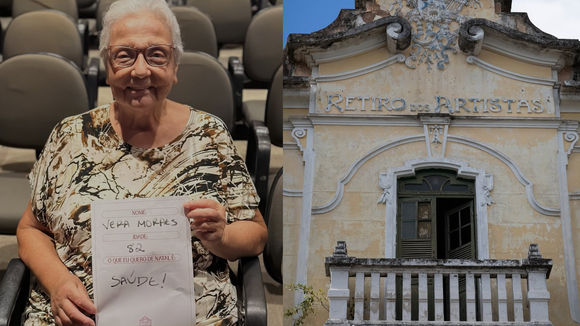 NOME
VERA MORAES
IDADE
82
O QUE EU QUERO DE NATAL É
SAÚDE!
RETIRO DOS ARTISTAS